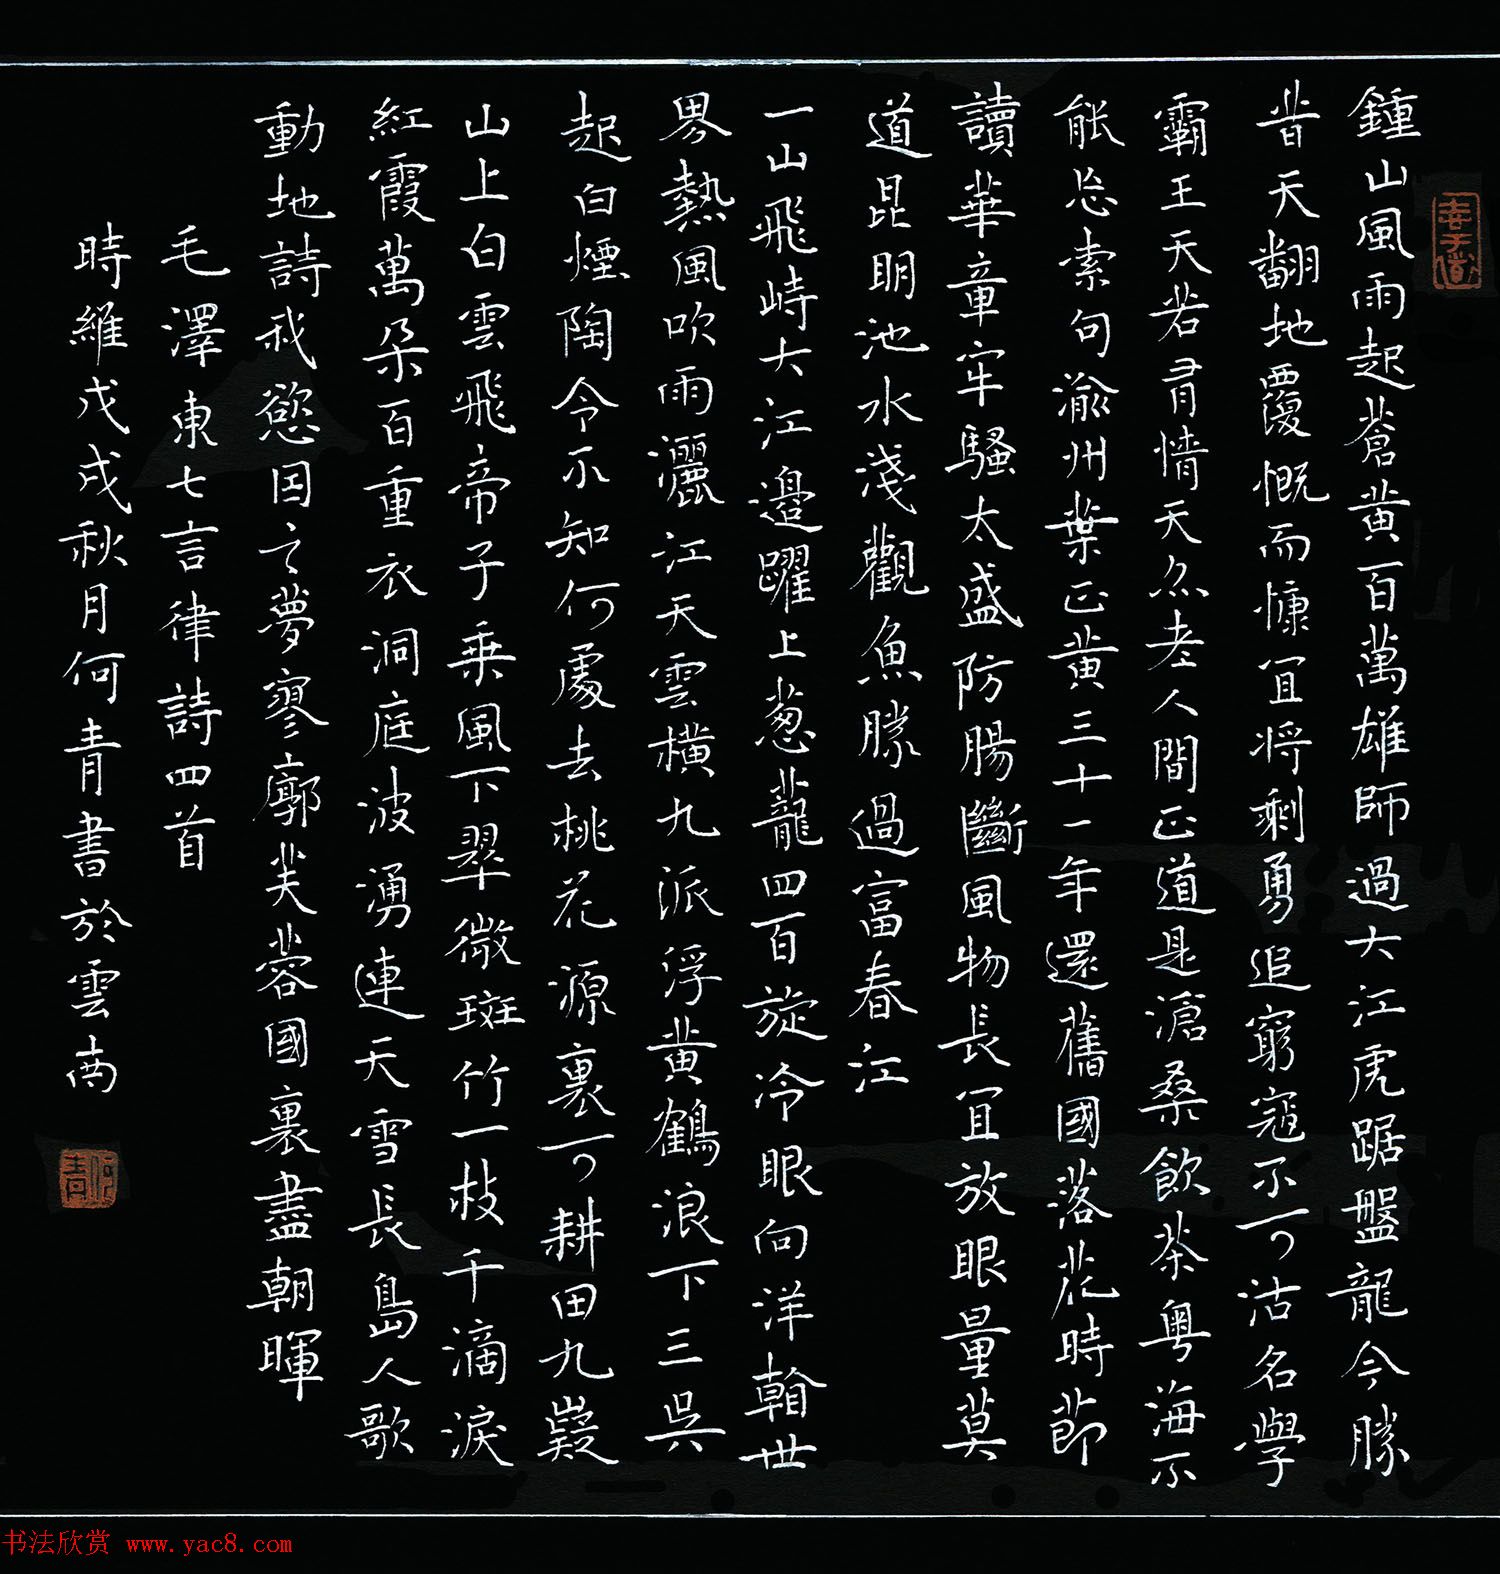 鍾山風雨起蒼黄百萬雄師過大江虎踞盤龍今勝
昔天翻地覆慨而慷宜将剩勇追窮寇不可沽名學
霸王天若有情天亦老人間正道是滄桑飲茶粤海不
能忘索句渝州葉正黄三十一年還舊國落花時節
讀華章牢騷太盛防腸斷風物長宜放眼量莫
道昆明池水淺觀魚勝過富春江
一山飛峙大江邊躍上葱蘢四百旋冷眼向洋㸔世
界熱風吹雨灑江天雲横九派浮黄鶴浪下三吴
起白煙陶令不知何處去桃花源裏可耕田九嶷
山上白雲飛帝子乗風下翠微斑竹一枝千滴淚
紅霞萬朵百重衣洞庭波湧連天雪長島人歌
動地詩我慾因之夢寥廓芙蓉國裏盡朝暉
毛澤東七言律詩四首
時維戊戌秋月何青書於雲南
何青
书法欣赏 www.yac8.com